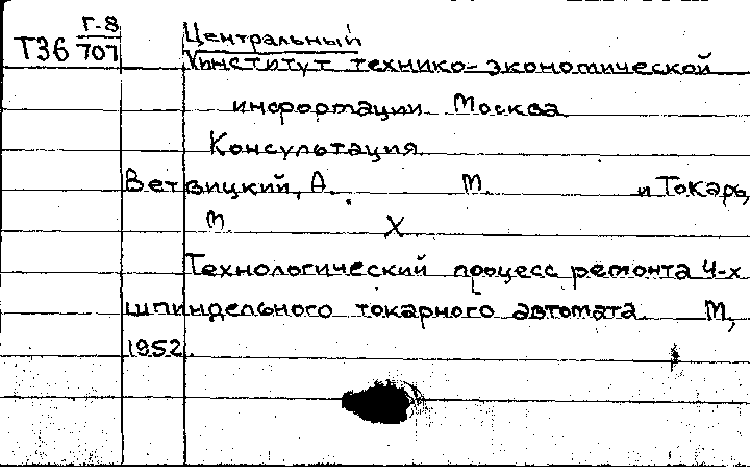 Г-8
Т36 707
Центральный
институт технико-экономической
информации. Москва
Консультация
Ветвицкий, А. М. и Токарь,
М Х
Технологический процесс ремонта 4-х
шпиндельного токарного автомата. М,
1952.